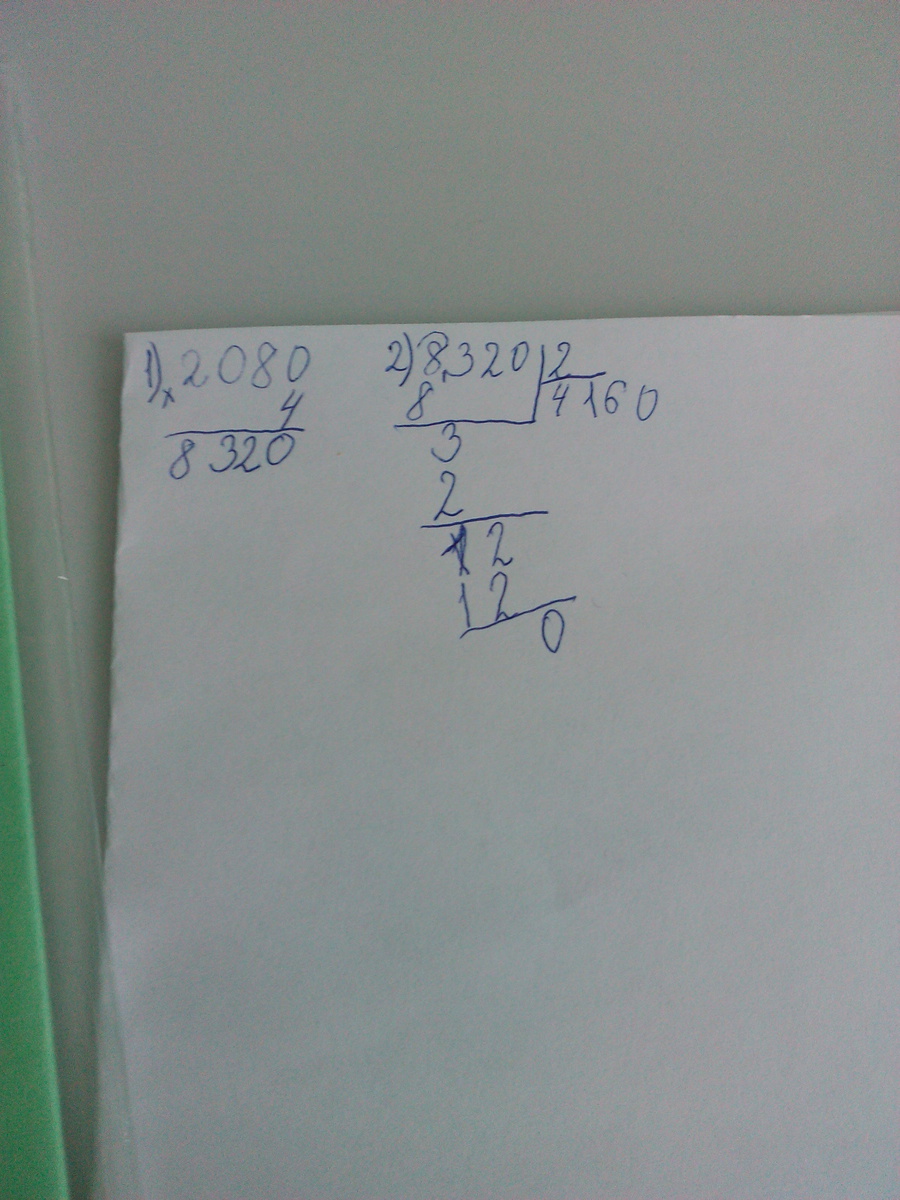 1) x 2080
4
8320
2) 8320 2
8 4160
3
2
12
12
0